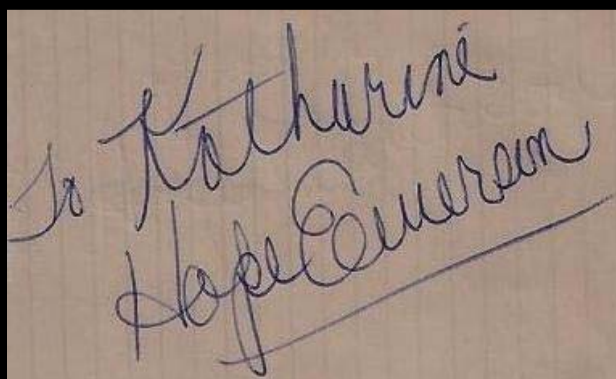 To Katharine
Hope Emerson